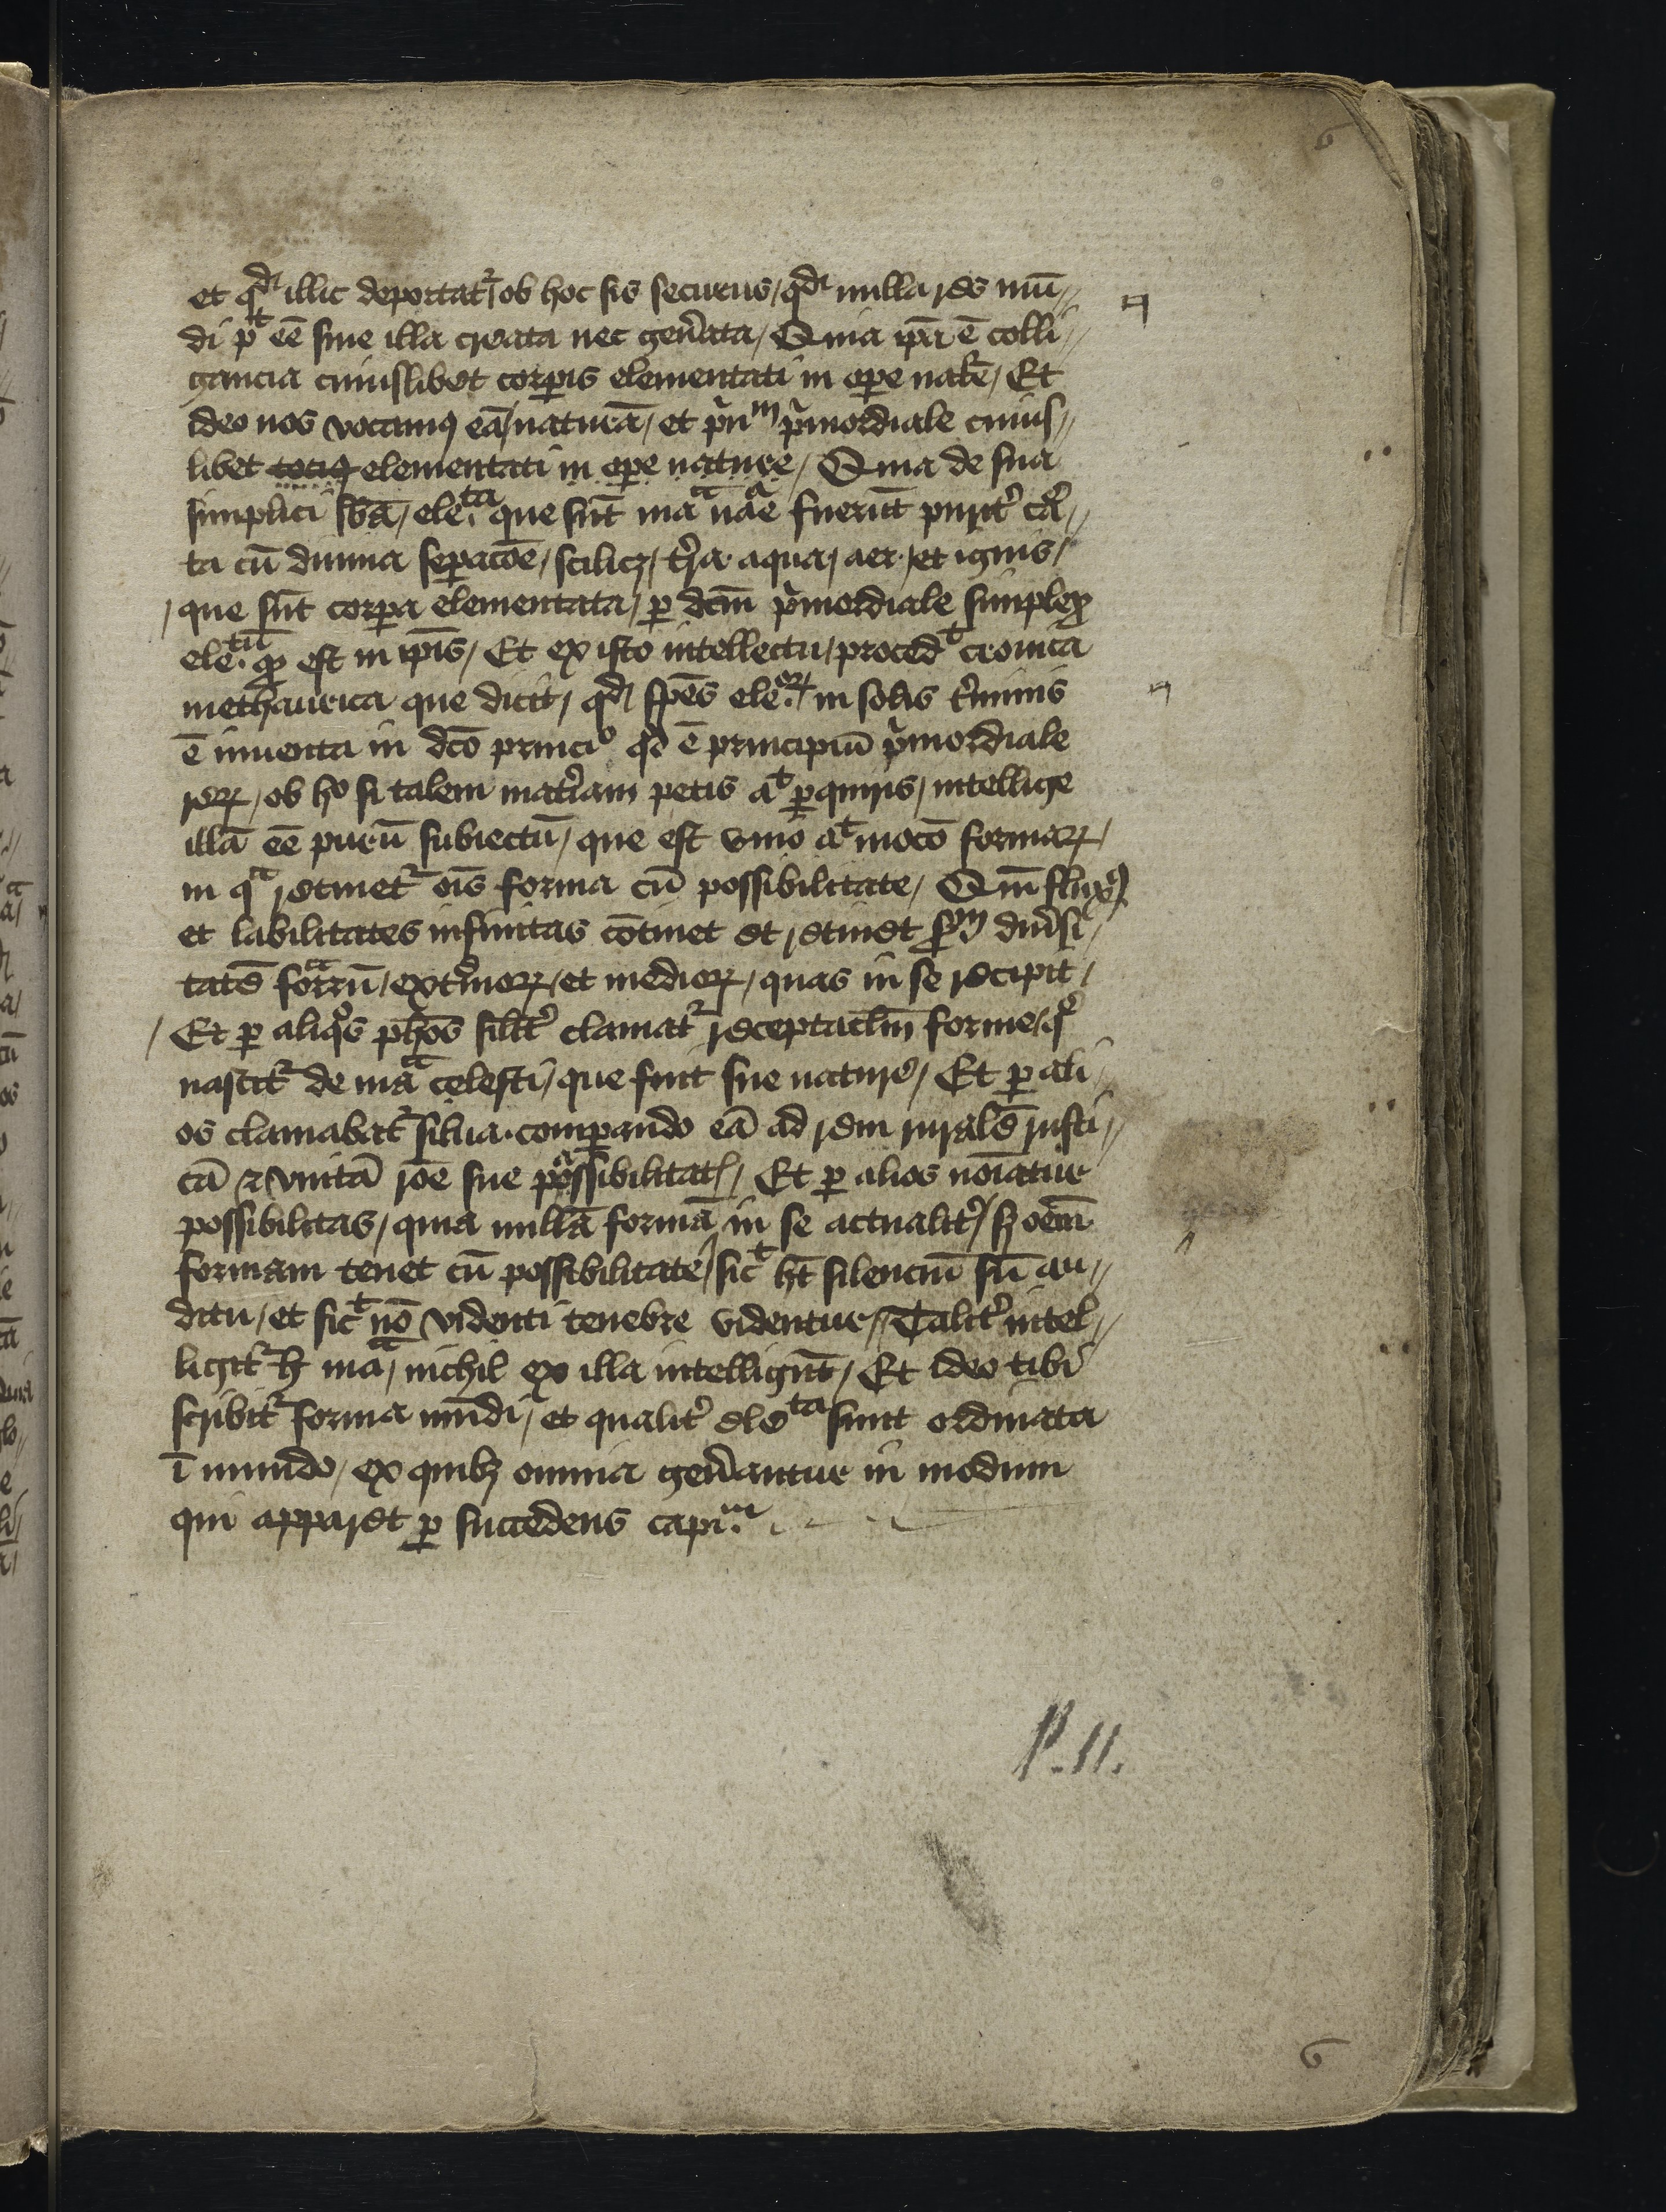 6
et qd illic deportatr ob hoc sis securus / qd nulla res mū //
di pt eē sine illa creata nec gen̄ata / Quia ip̄a ē colli //
gancia cuiuslibet corpis elementati in ope nat̄e / Et
ideo nos vocamꝰ eā / naturā / et pn̄m pimordiale cuius //
libet totiꝰ elementati in ope nature / Quia de sua
simplici sb̄a / ele.ta que sūt ma nāe fuerūt purit̄ cā //
ta cū diuina sepacōe / scilicꝫ / t̄ra aqua / aer / et ignis /
que sūt corpa elementata / ꝑ dcm̄ pimordiale simplex
ele.tū qd est in ip̄is / Et ex isto intellectu / procedt cronica
methaurica que dicit / qd sp̄es ele.oꝝ in solis t̄minis
ē inuenta in dc̄o princio qd ē principiū pimordiale
reꝝ / ob ho si talem mat̄iam petis at ꝑquiris / intellige
illā eē purū subiectū / que est vnio at mocō formaꝝ /
in qa retinetr oīs forma cū possibilitate / Qm̄
et labilitates infinitas cōtinet et retinet diu̓si //
tatē forārū / ext̄moꝝ / et medioꝝ / quas in se recipit /
Et ꝑ aliqos ph̄os silit̄ clamatr receptaclm̄ forme / qe
nascitr de ma celesti / que fuit sue nature / Et ꝑ ali
os clamabatr silua · comꝑando eā ad rem ruralē rusti //
cā & vnitā rōe sue possibilitatꝭ / Et ꝑ alios noīatur
possibilitas / quia nullā formā in se actualit̄ / sꝫ oēm
formam tenet cū possibilitate / sict ht̄ silenciū sū au //
ditu / et sict nō videnti tenebre videntur // Talit̄ intel //
ligitr h ma / nichil ex illa intelligūt / Et ideo tibi
scribitr forma mūdi / et qualit̄ eleta sunt ordinata
ī mundo / ex quibꝫ omnia gen̄antur in modum
qui apparet ꝑ succedens capi.m
P. 11.
6